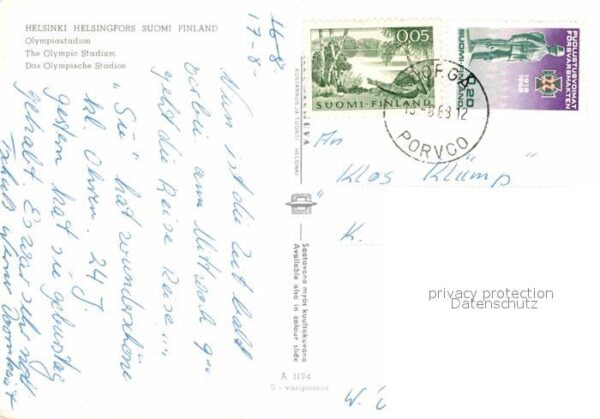 HELSINKI HELSINGFORS SUOMI FINLAND
Olympiastadion
The Olympic Stadium
Das Olympische Stadion
16-8
17-8-
Nun ist die Zeit bald
vorbei am Mittwoch
geht die Reise
"Sie" hat wunderschöne
bl Ohren. 24 J.
gestern hat sie geburtstag
gehabt Es war sehr nett
KUSTANNUS JA TUONTI · HELSINKI
Saatavana myös kuultokuvana
Available also in colour slide
A 1174
S - varipaino
0.05
SUOMI-FINLAND
PUOLUSTUSVOIMAT
FÖRSVARSMAKTEN
1918
1968
0.20
SUOMI-FINLAND
PORVOO
An
"Klos Klümp"
K.
privacy protection
Datenschutz